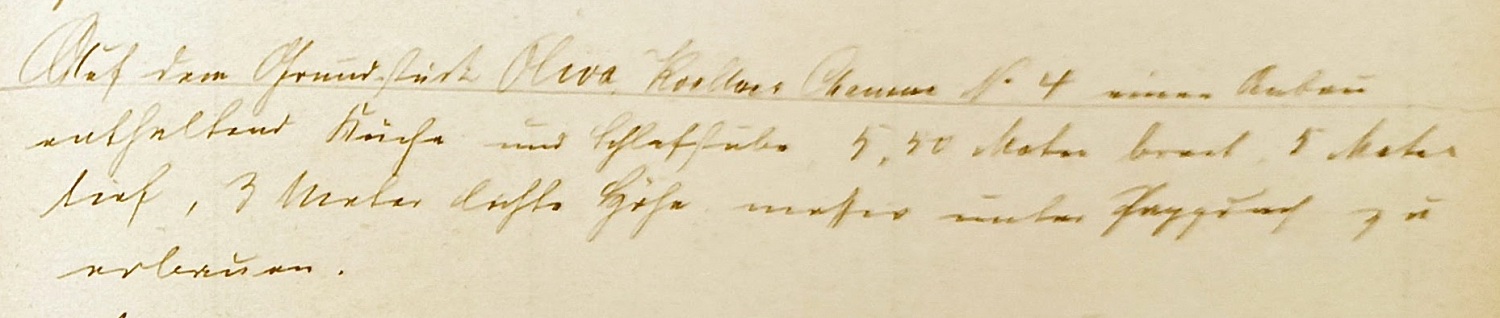 Auf dem Grundstück Oliva, Koellner Chaussee N. 4 einen Anbau
enthaltend Küche und Schlafstube 5,50 Meter breit 5 Meter
tief, 3 Meter lichte Höhe massiv unter Pappdach zu
erbauen.